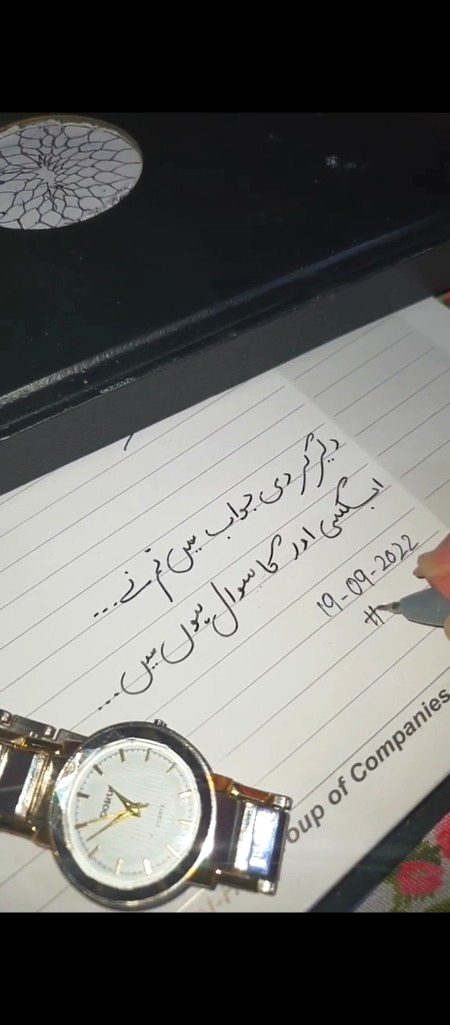 دیر کر دی جواب میں تم نے...
اب کسی اور کا سوال ہوں میں...
19-09-2022
#
oup of Companies